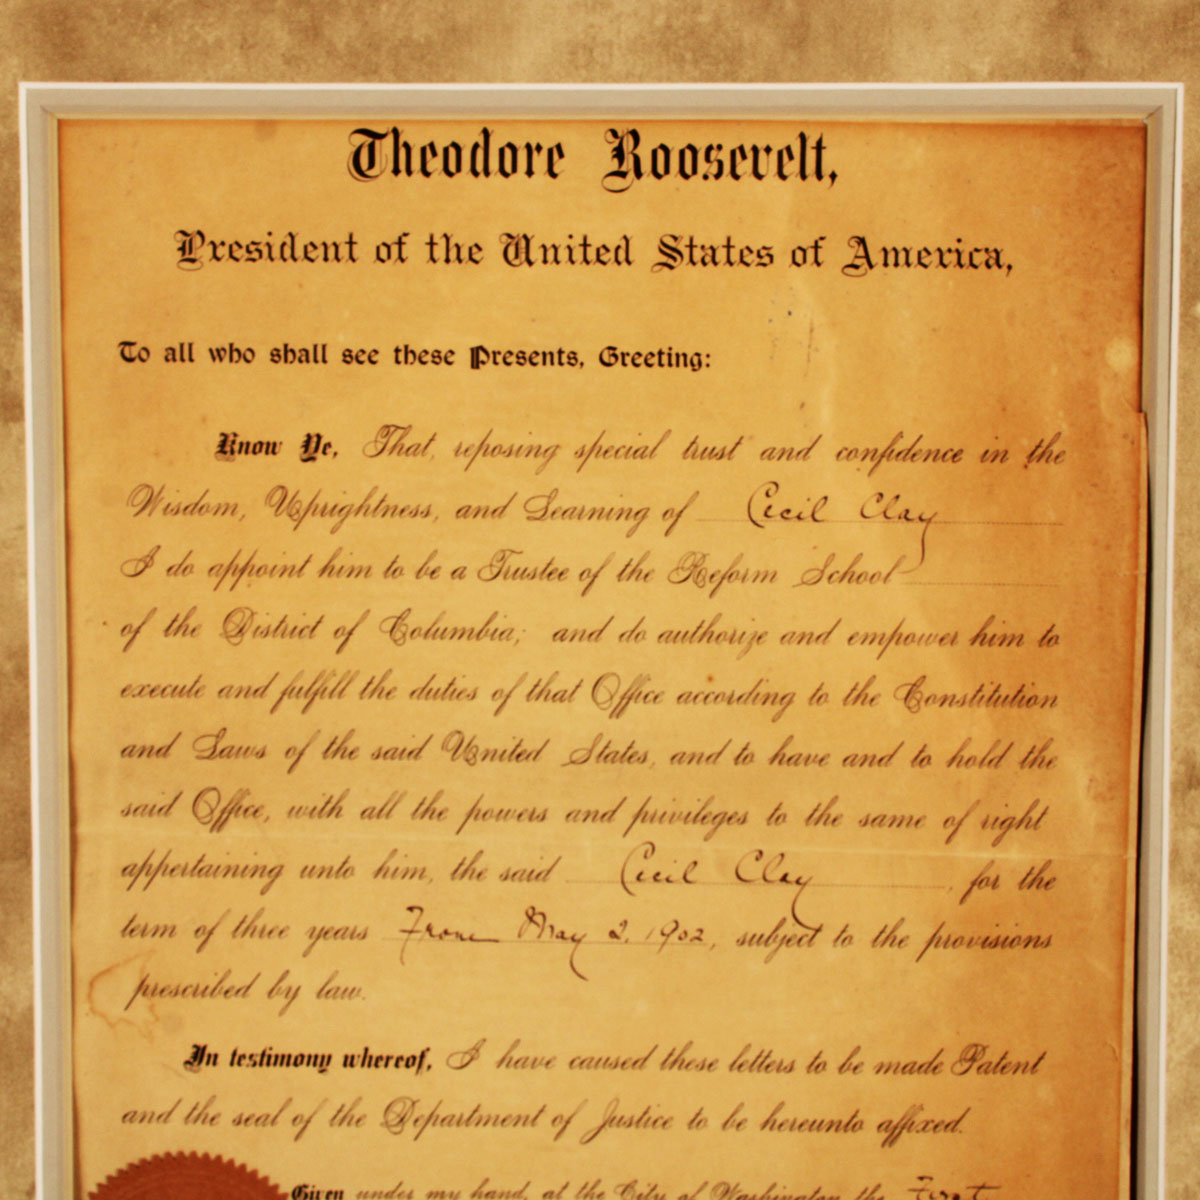 Theodore Roosevelt,
President of the United States of America,
To all who shall see these Presents, Greeting:
Know Ye, That, reposing special trust and confidence in the
Wisdom, Uprightness, and Learning of Cecil Clay
I do appoint him to be a Trustee of the Reform School
of the District of Columbia; and do authorize and empower him to
execute and fulfill the duties of that Office according to the Constitution
and Laws of the said United States, and to have and to hold the
said Office, with all the powers and privileges to the same of right
appertaining unto him, the said Cecil Clay, for the
term of three years From May 2, 1902, subject to the provisions
prescribed by law.
In testimony whereof, I have caused these letters to be made Patent
and the seal of the Department of Justice to be hereunto affixed.
Given under my hand, at the City of Washington the First